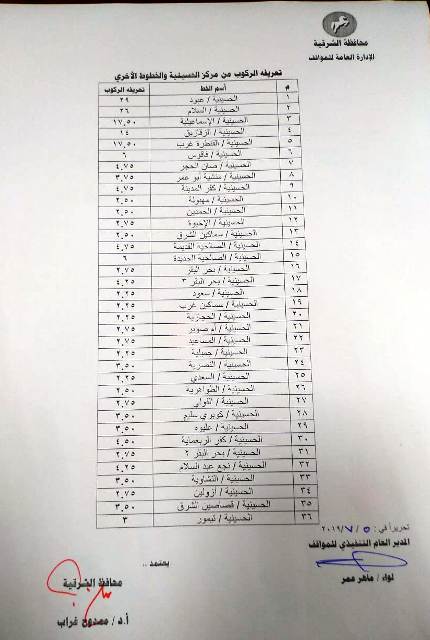 محافظة الشرقية
الإدارة العامة للمواقف
تعريفه الركوب من مركز الحسينية والخطوط الأخري
# أسم الخط تعريفه الركوب
١ الحسينية / عبود ٢٩
٢ الحسينية / السلام ٢٦
٣ الحسينية / الإسماعيلية ١٧.٥٠
٤ الحسينية / الزقازيق ١٤
٥ الحسينية / القنطرة غرب ١٧.٥٠
٦ الحسينية / فاقوس ٦
٧ الحسينية / صان الحجر ٤.٧٥
٨ الحسينية / منشية أبو عمر ٣.٧٥
٩ الحسينية / كفر المدينة ٤.٧٥
١٠ الحسينية / مهبولة ٢.٥٠
١١ الحسينية / الحمدين ٢.٥٠
١٢ الحسينية / الإخيوة ٢.٧٥
١٣ الحسينية / سماكين الشرق ٢.٥٠
١٤ الحسينية / الصالحية القديمة ٤.٧٥
١٥ الحسينية / الصالحية الجديدة ٦
١٦ الحسينية / بحر البقر ٢.٧٥
١٧ الحسينية / بحر البقر ٣ ٤.٢٥
١٨ الحسينية / سعود ٢.٢٥
١٩ الحسينية / سماكين غرب ٢.٢٥
٢٠ الحسينية / الحجازية ٢.٢٥
٢١ الحسينية / أم صوير ٢.٧٥
٢٢ الحسينية / المساعيد ٢.٧٥
٢٣ الحسينية / جميلية ٢.٢٥
٢٤ الحسينية / النصرية ٣.٥٠
٢٥ الحسينية / السعدي ٢.٢٥
٢٦ الحسينية / الظواهرية ٢.٥٠
٢٧ الحسينية / اللولي ٢.٧٥
٢٨ الحسينية / كوبري سليم ٣.٥٠
٢٩ الحسينية / عليوه ٣.٥٠
٣٠ الحسينية / كفر الربعماية ٤.٥٠
٣١ الحسينية / بحر البقر ٢ ٣.٥٠
٣٢ الحسينية / نجع عبد السلام ٤.٢٥
٣٣ الحسينية / الشاوية ٣.٥٠
٣٤ الحسينية / أزولين ٢.٧٥
٣٥ الحسينية / قصاصين الشرق ٣.٥٠
٣٦ الحسينية / تيمور ٣
تحريراً في : ٥ / ٧ / ٢٠١٩
المدير العام التنفيذي للمواقف
لواء / ماهر عمر
يعتمد ..
محافظ الشرقية
أ.د / ممدوح غراب